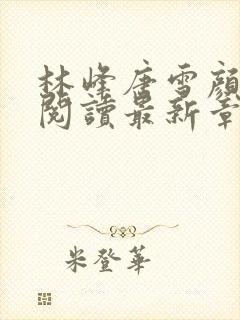 林峰唐雪顏
閱讀最新章
米登華